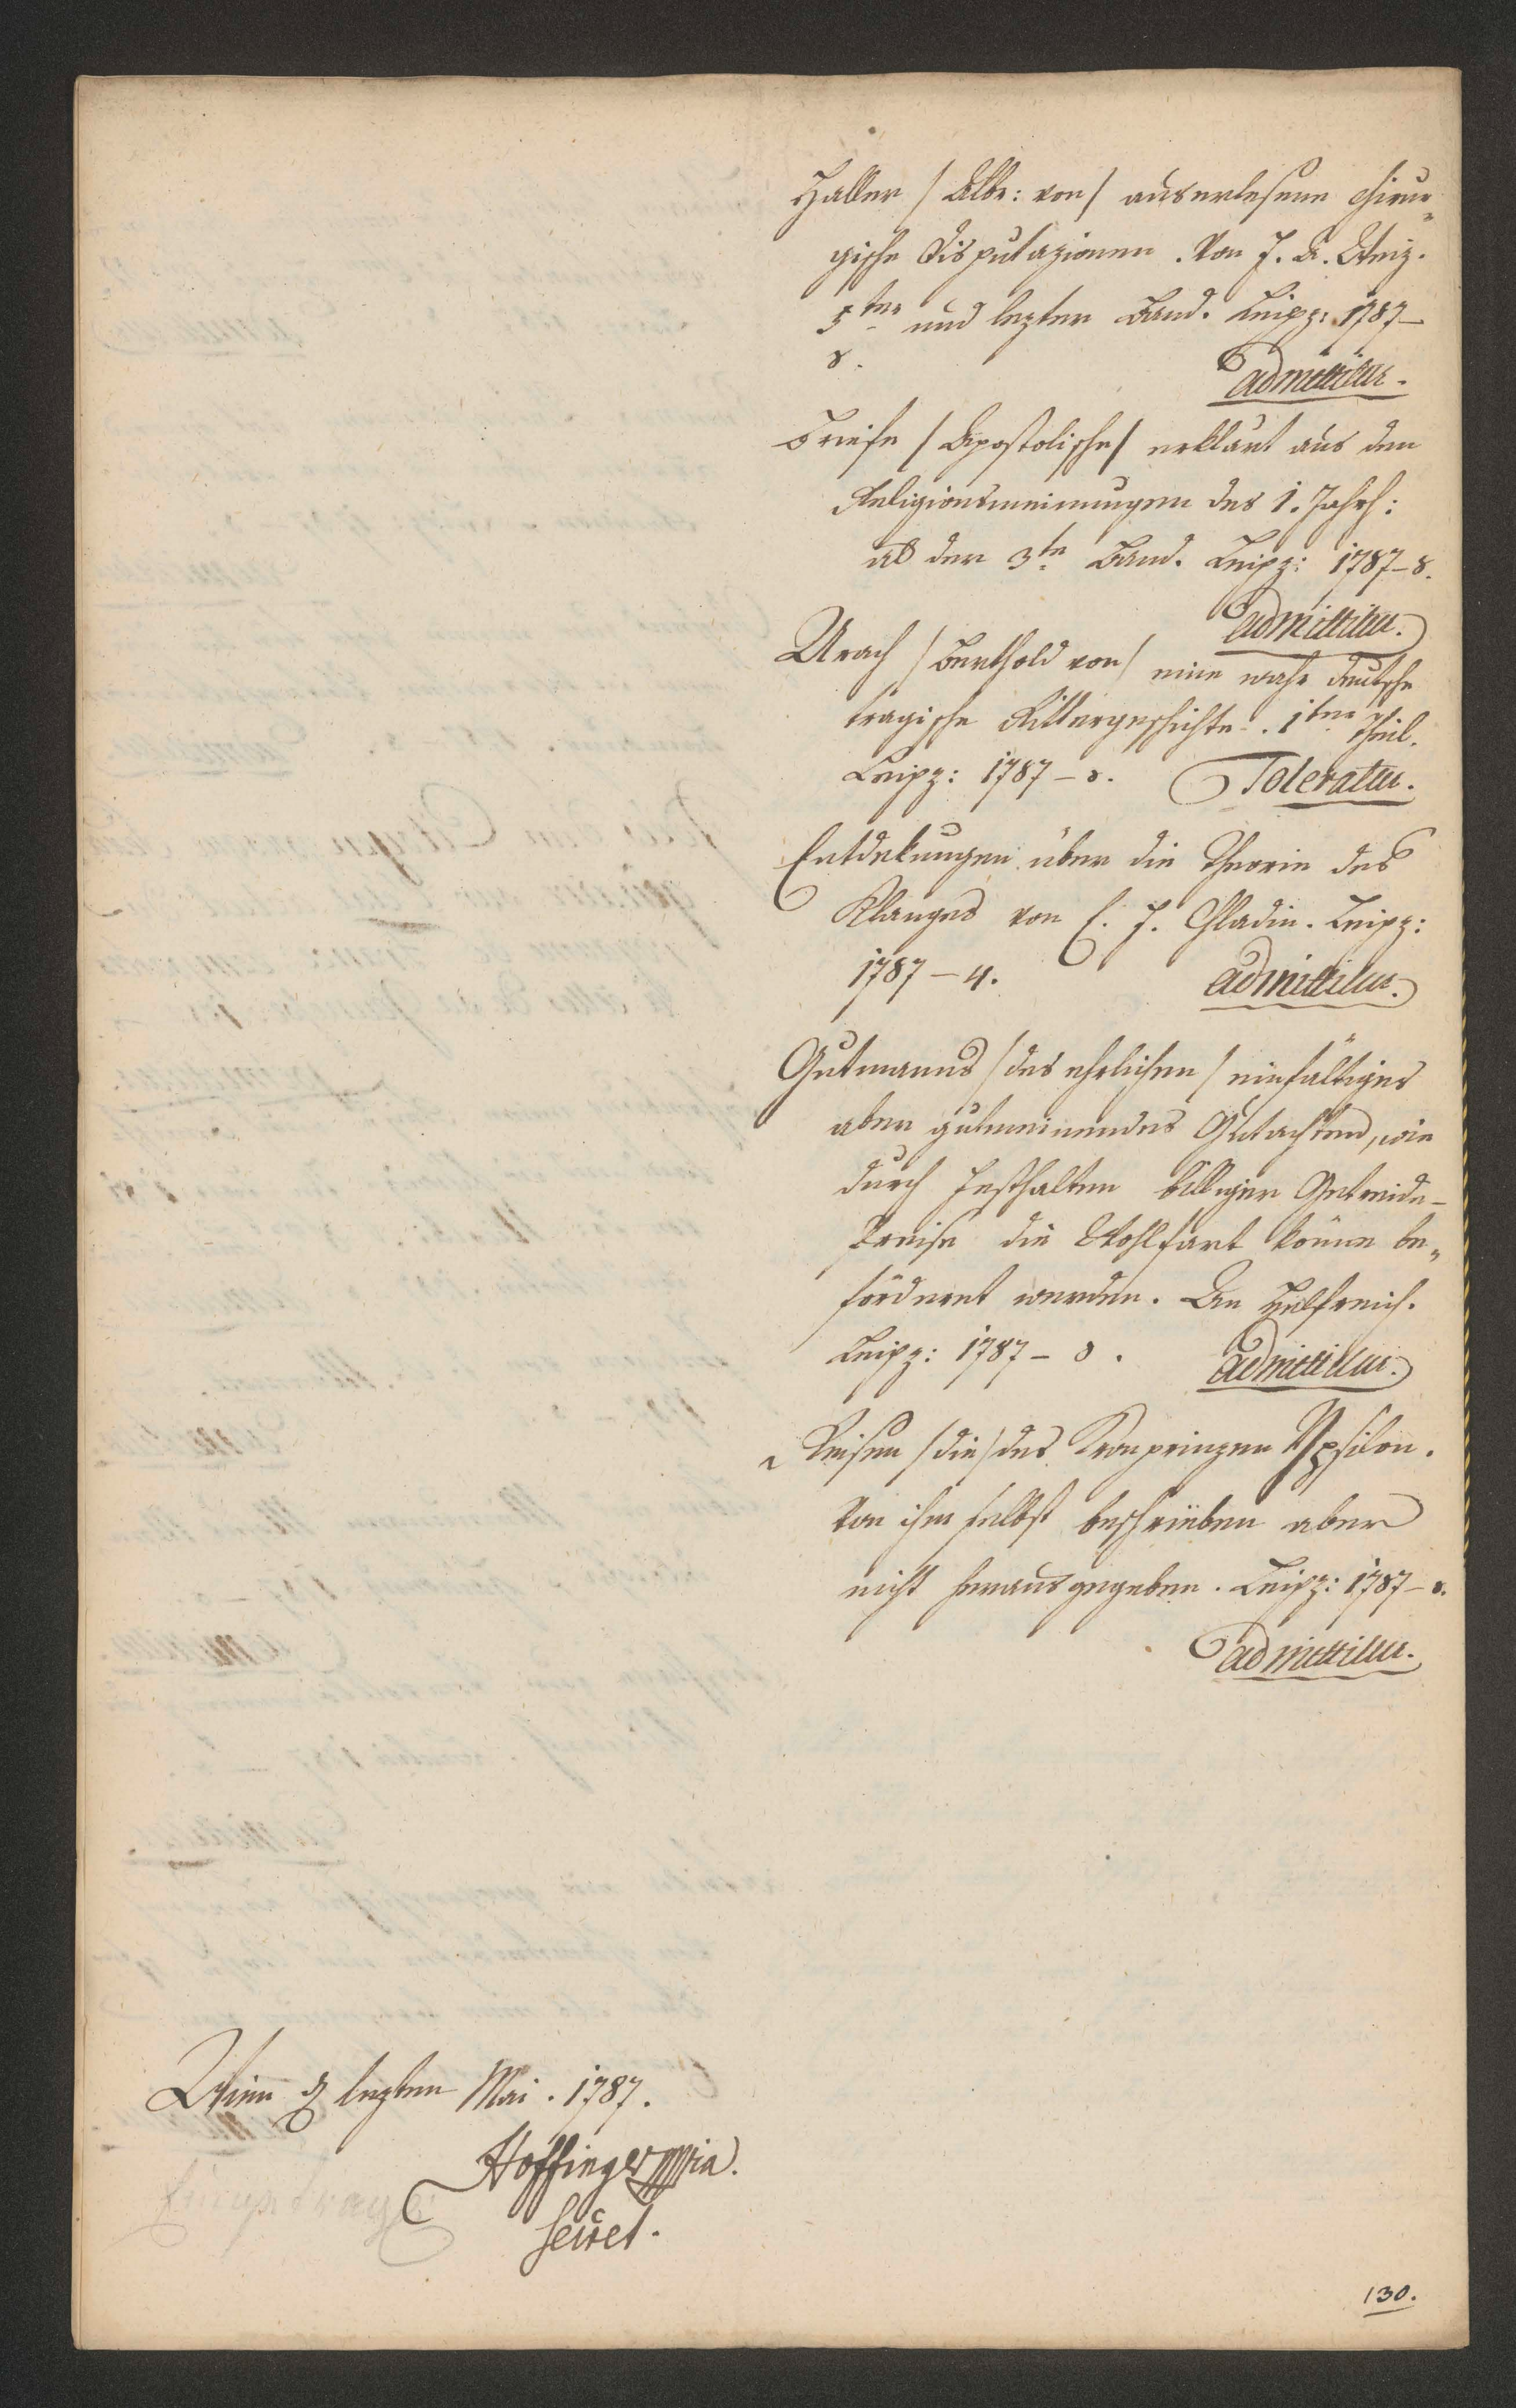 Haller / Albr: von / auserlesene chirur„
gische Disputazionen. Von F. A. Weiz.
5ter und lezter Band. Leipz: 1787–
8.
admittitur.
Briefe / Apostolische / erklärt aus den
Religionsmeinungen des 1. Jahrh:
als der 3te Band. Leipz: 1787–8.
admittitur.
Urach / Berthold von / eine wahr deutsche
tragische Rittergeschichte. 1ter Theil.
Leipz: 1787–8. Toleratur.
Entdekungen über die Theorie des
Klanges von E. F. Chladin. Leipz:
1787–4. admittitur.
Gutmanns / des ehrlichen / einfältiges
aber gutmeinendes Gutachten, wie
durch Festhalten billiger Getreide-
Preise die Wohlfart könne be„
fördernt werden. An Hülfreich.
Leipz: 1787–8. admittitur.
Reisen / die / des Kronprinzen Ypsilon.
Von ihm selbst beschrieben aber
nicht herausgegeben. Leipz: 1787–8.
admittitur.
Wien d lezten Mai. 1787.
Hoffinger mpria.
Secret.
130.